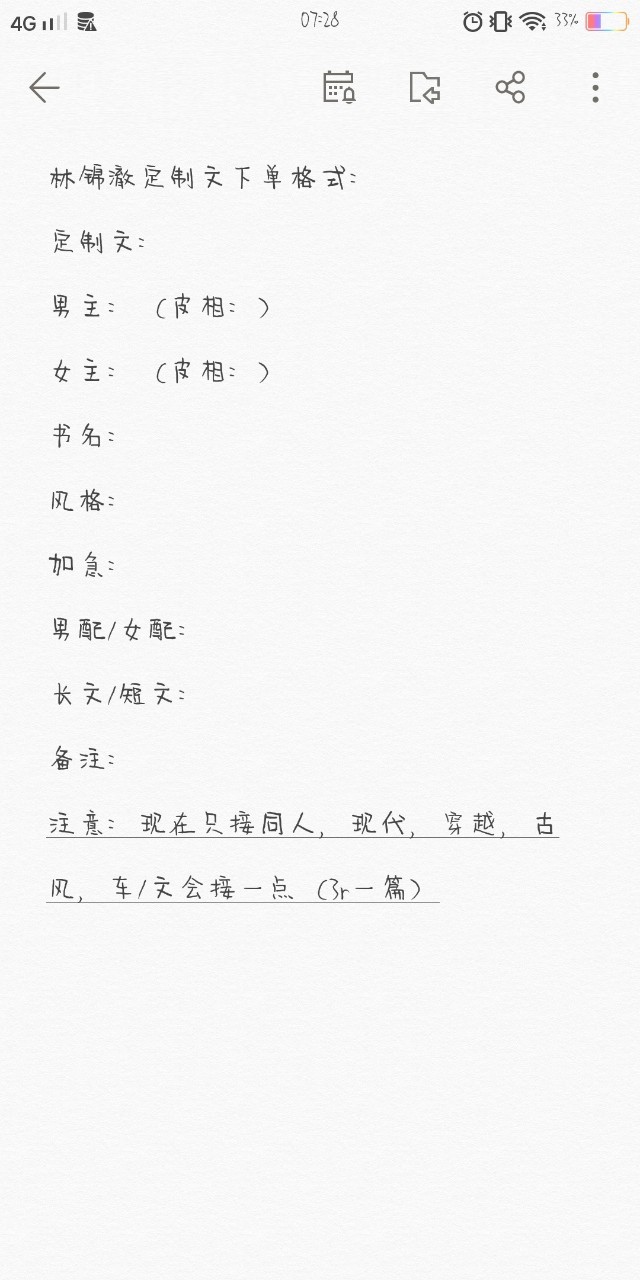 4G 07:28 33%
林锦澈定制文下单格式:
定制文:
男主: (皮相: )
女主: (皮相: )
书名:
风格:
加急:
男配/女配:
长文/短文:
备注:
注意: 现在只接同人, 现代, 穿越, 古
风, 车/文会接一点 (3r一篇)